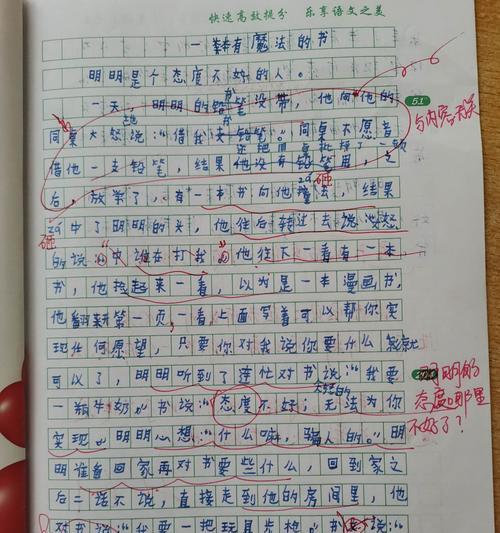 快速高效提分 乐享语文之美
一本有魔法的书
明明是个态度不好的人。
一天,明明的铅笔没带,他向他的
同桌大怒说:“借我支铅笔。”同桌不愿意
借他一支铅笔,结果他没有铅笔用,之
后,放学了,有一本书向他砸去,结果
砸中了明明的头,他往后转过去愤怒
的说:“中谁在打我。”他往下一看有一本
书,他捡起来一看,以为是一本漫画书,
他翻开第一页,一看,上面写着可以帮你实
现任何愿望,只要你对我说你要什么就
可以了,明明听到了连忙对书说:“我要
一瓶牛奶。”书说:“态度不好,无法为你
实现。”明明心想:“什么嘛,骗人的。”明
明准备回家再对书要些什么,回到家之
后二话不说,直接走到他的房间里,他
对书说:“我要一把玩具步枪。”书说:
51
与内容无关
明明的
态度哪里
不好了?